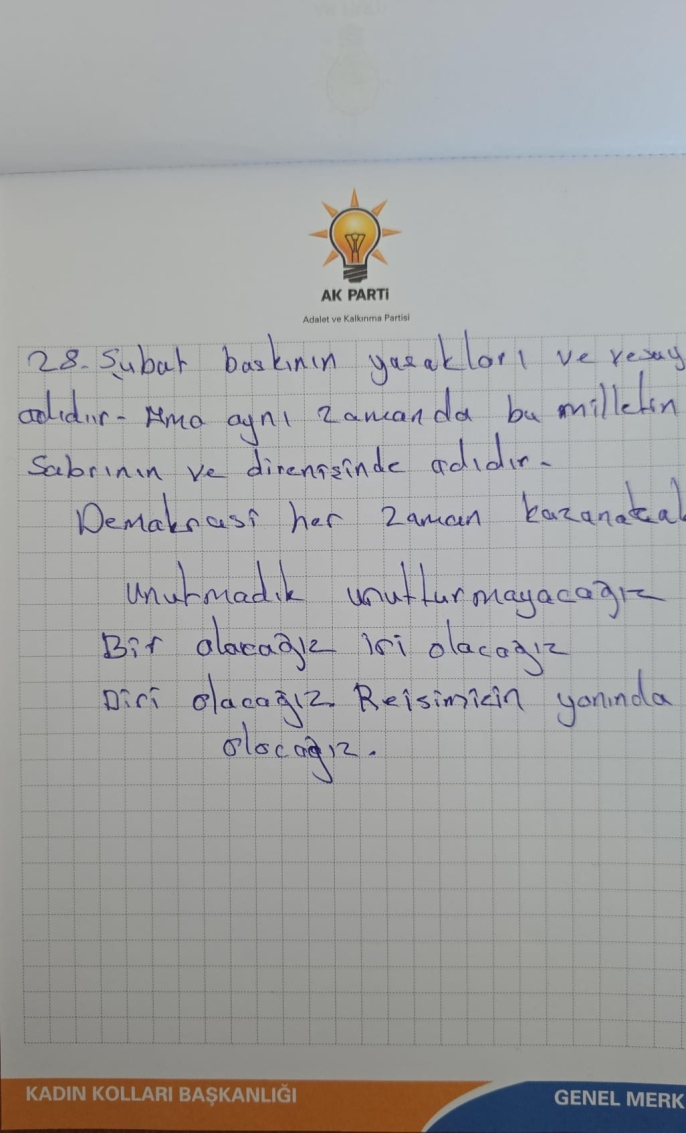 AK PARTİ
Adalet ve Kalkınma Partisi
28. Şubat baskının yasakları ve vesay
adıdır. Ama aynı zamanda bu milletin
Sabrının ve direnişinde adıdır.
Demokrasi her zaman kazanacak
unutmadık unutturmayacağız
Bir olacağız iri olacağız
Diri olacağız Reisimizin yanında
olacağız.
KADIN KOLLARI BAŞKANLIĞI
GENEL MERK